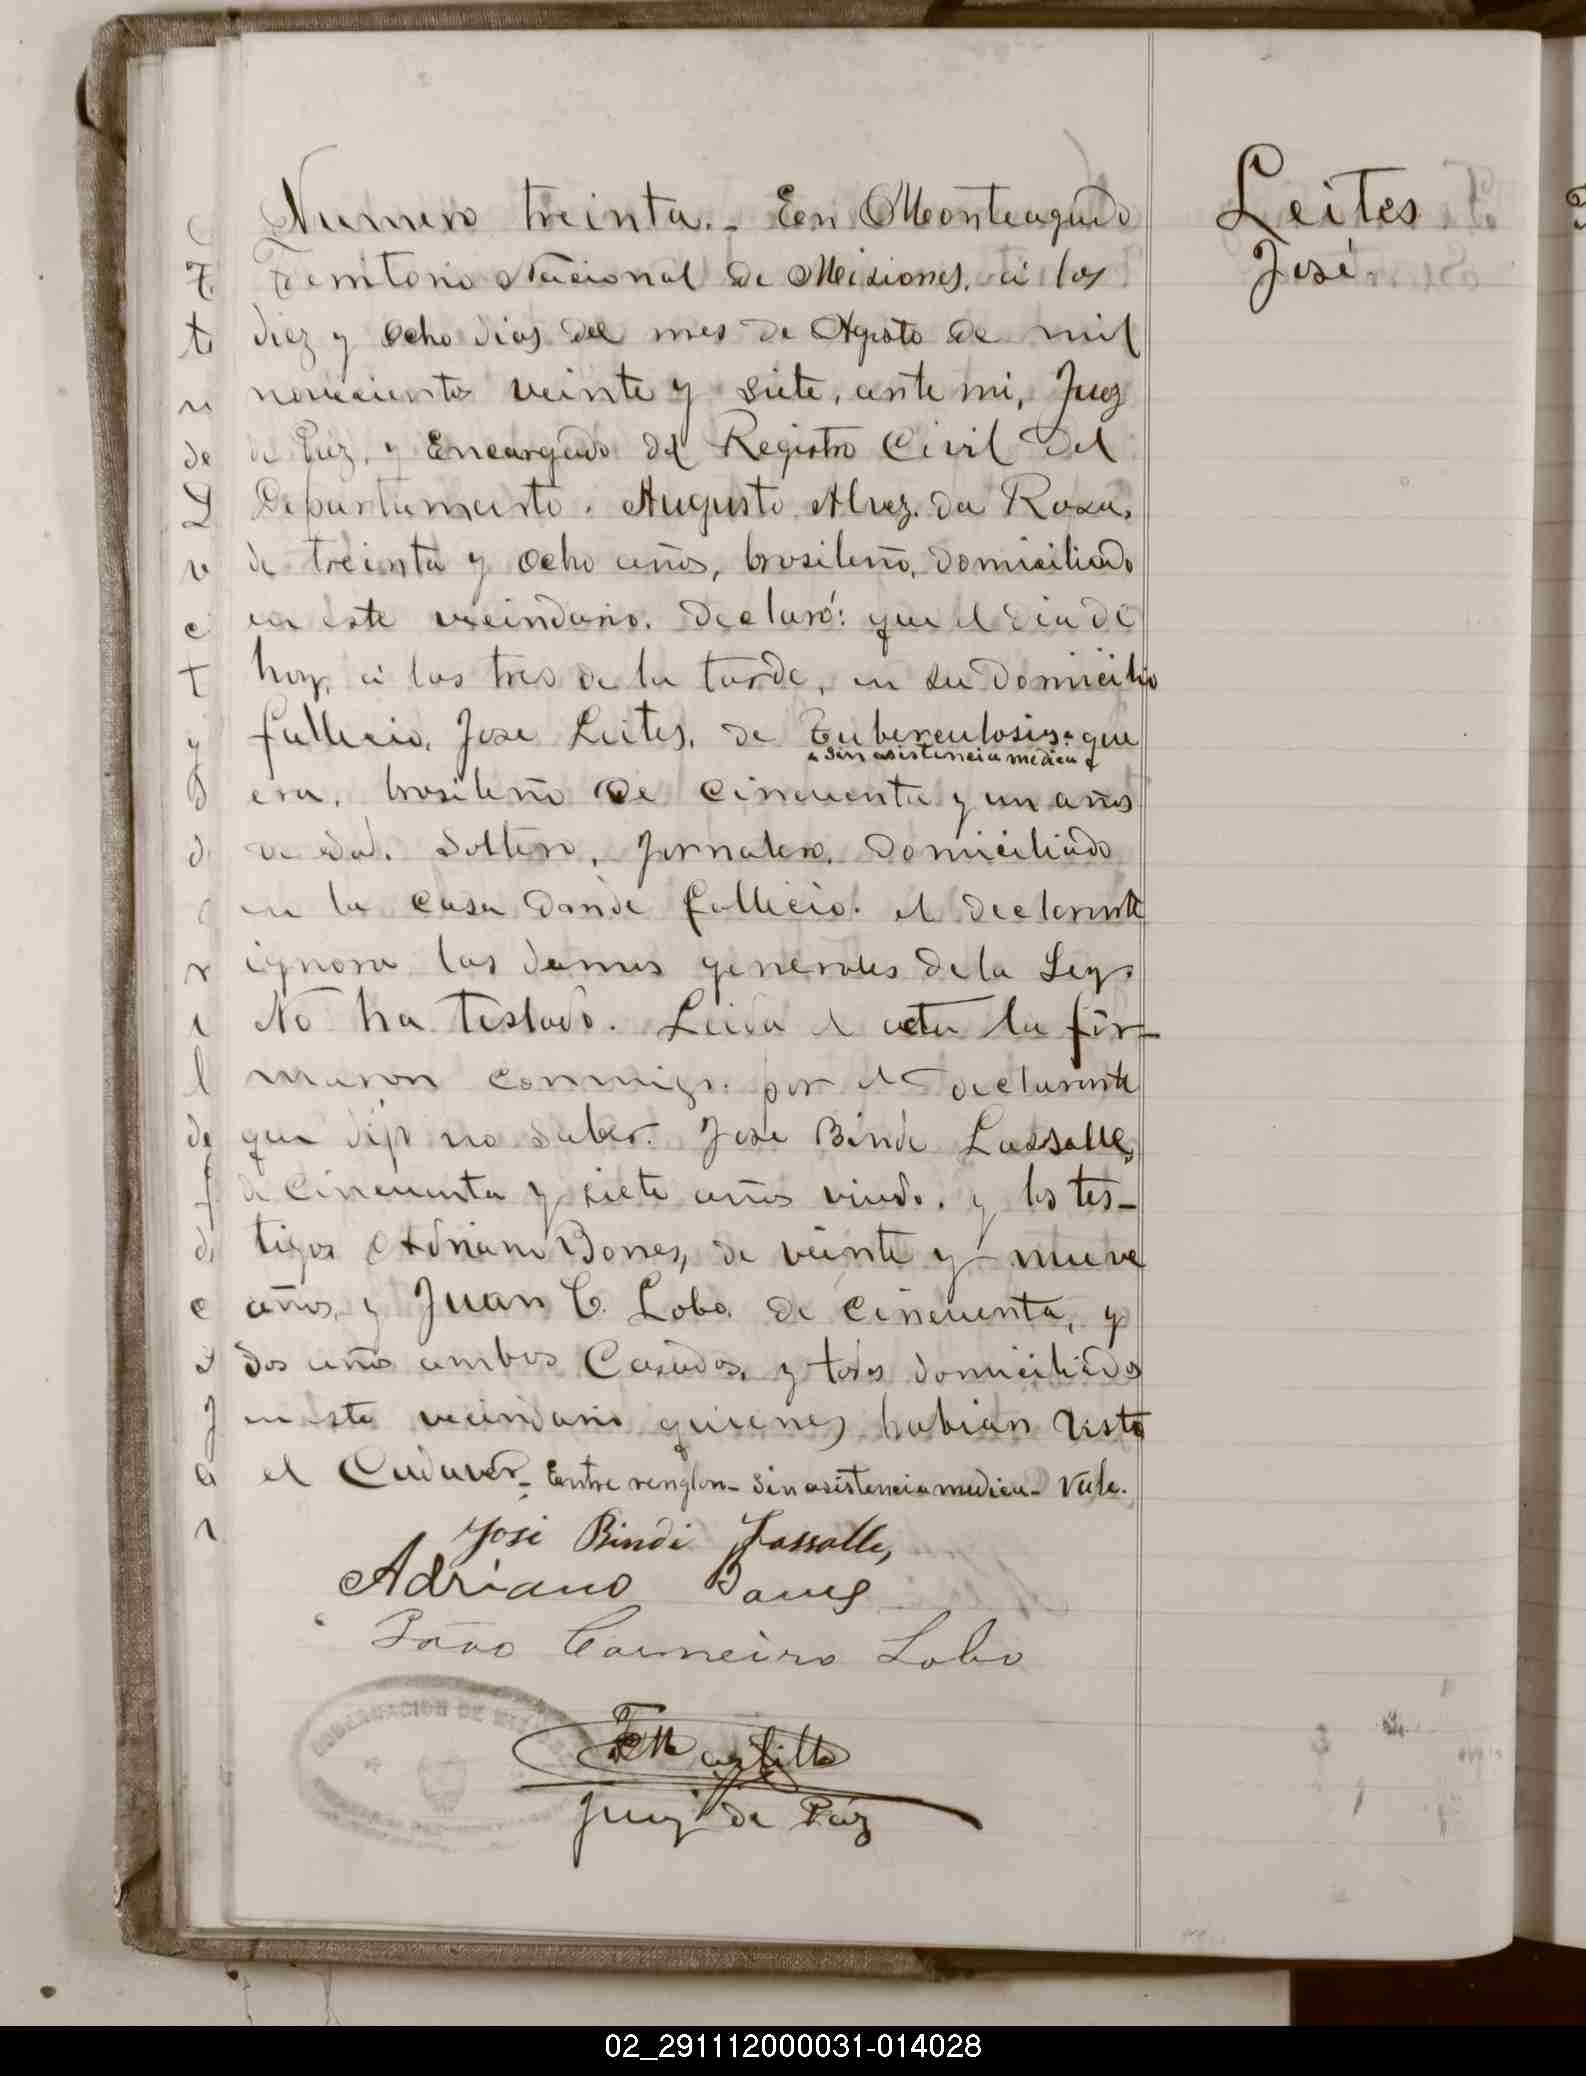 Leites
José
Numero treinta.- En Monteagudo
Territorio Nacional de Misiones, á los
diez y ocho dias del mes de Agosto de mil
novecientos veinte y siete, ante mi, Juez
de Paz, y Encargado del Registro Civil del
Departamento. Augusto Alvez da Rosa,
de treinta y ocho años, brasileño, domiciliado
en este vecindario. declaró: que el dia de
hoy, á las tres de la tarde, en su domicilio
fallecio, Jose Leites, de Tuberculosis: que
sin asistencia medica
era, brasileño de cincuenta y un años
de edad. Soltero, Jornalero, domiciliado
en la casa donde fallecio. el declarante
ignora las demas generales de la Ley.
No ha testado. Leida el acta la fir-
maron conmigo. por el declarante
que dijo no saber. Jose Binde Lassalle,
de cincuenta y siete años viudo. y los tes-
tigos Adriano Bones, de veinte y nueve
años, y Juan C. Lobo. de cincuenta, y
dos años ambos Casados, y todos domiciliados
en este vecindario quienes habian visto
el Cadaver.- Entre renglon- sin asistencia medica- Vale.
José Bindé Lassalle,
Adriano
João Carneiro Lobo
GOBERNACION DE
Juez de Paz
02_291112000031-014028